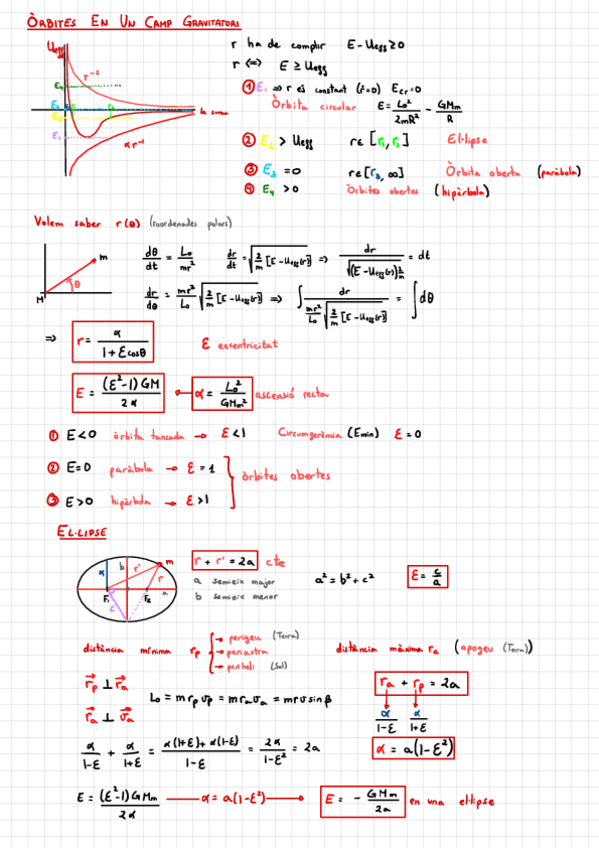 ÒRBITES EN UN CAMP GRAVITATORI
Ueff
r ha de complir E-Ueff≥0
r⁻²
r <=> E ≥ Ueff
E₄
① E₁ => r és constant (ṙ=0) Ecr=0
E₃ r₁ r₃ r₂
E₂
Òrbita circular E = L₀²/2mR² - GMm/R
E₁
α r⁻¹
② E₂ > Ueff r∈[r₁,r₂] El·lipse
③ E₃ =0 r∈[r₃,∞] Òrbita oberta (paràbola)
④ E₄ >0 Òrbites obertes (hipèrbola)
Volem saber r(θ) (coordenades polars)
m
θ
M
dθ/dt = L₀/mr² dr/dt = √(2/m [E-Ueff(r)]) => dr/√((E-Ueff(r))2/m) = dt
dr/dθ = mr²/L₀ √(2/m [E-Ueff(r)]) => ∫ dr/(mr²/L₀ √(2/m [E-Ueff(r)])) = ∫dθ
=> r = α/1+εcosθ ε excentricitat
E = (ε²-1)GM/2α α = L₀²/GMm² ascensió recta
① E<0 òrbita tancada → ε<1 Circumferència (Emin) ε=0
② E=0 paràbola → ε=1
òrbites obertes
③ E>0 hipèrbola → ε>1
EL·LIPSE
m
α b r' r
F₁ F₂ a
c
r + r' = 2a cte
a semieix major
b semieix menor
a² = b² + c²
ε = c/a
distància mínima rp
→ perigeu (Terra)
→ periastra
→ periheli (Sol)
distància màxima ra (apogeu (Terra))
rp ⊥ ra
ra ⊥ va
L₀ = m rp vp = m ra va = m r v sin β
ra + rp = 2a
α/1-ε α/1+ε
α/1-ε + α/1+ε = α(1+ε)+α(1-ε)/1-ε = 2α/1-ε² = 2a
α = a(1-ε²)
E = (ε²-1)GMm/2α — α = a(1-ε²) → E = - GMm/2a en una el·lipse